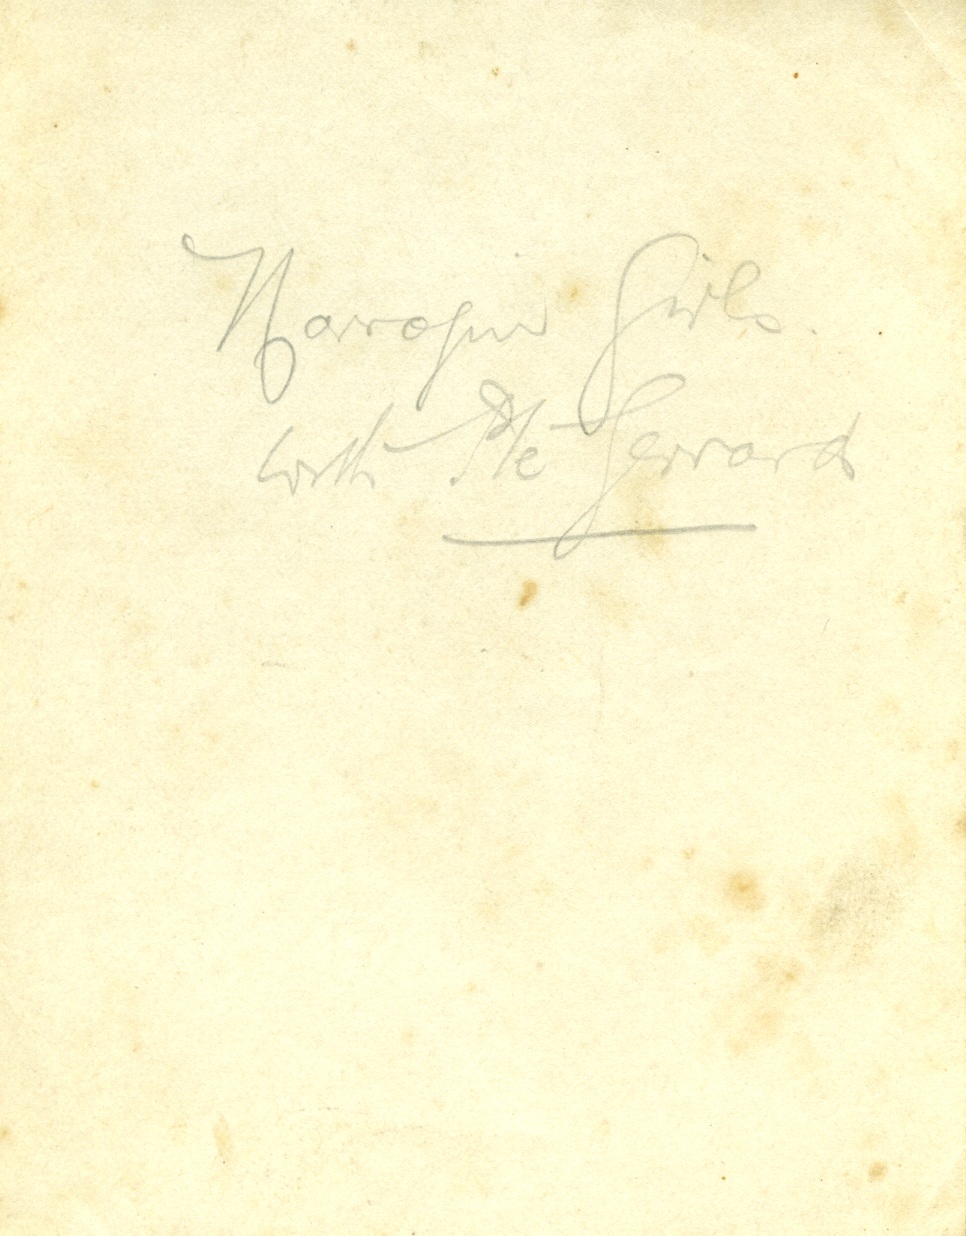 Narrogin Girls.
with Pte Gerrard